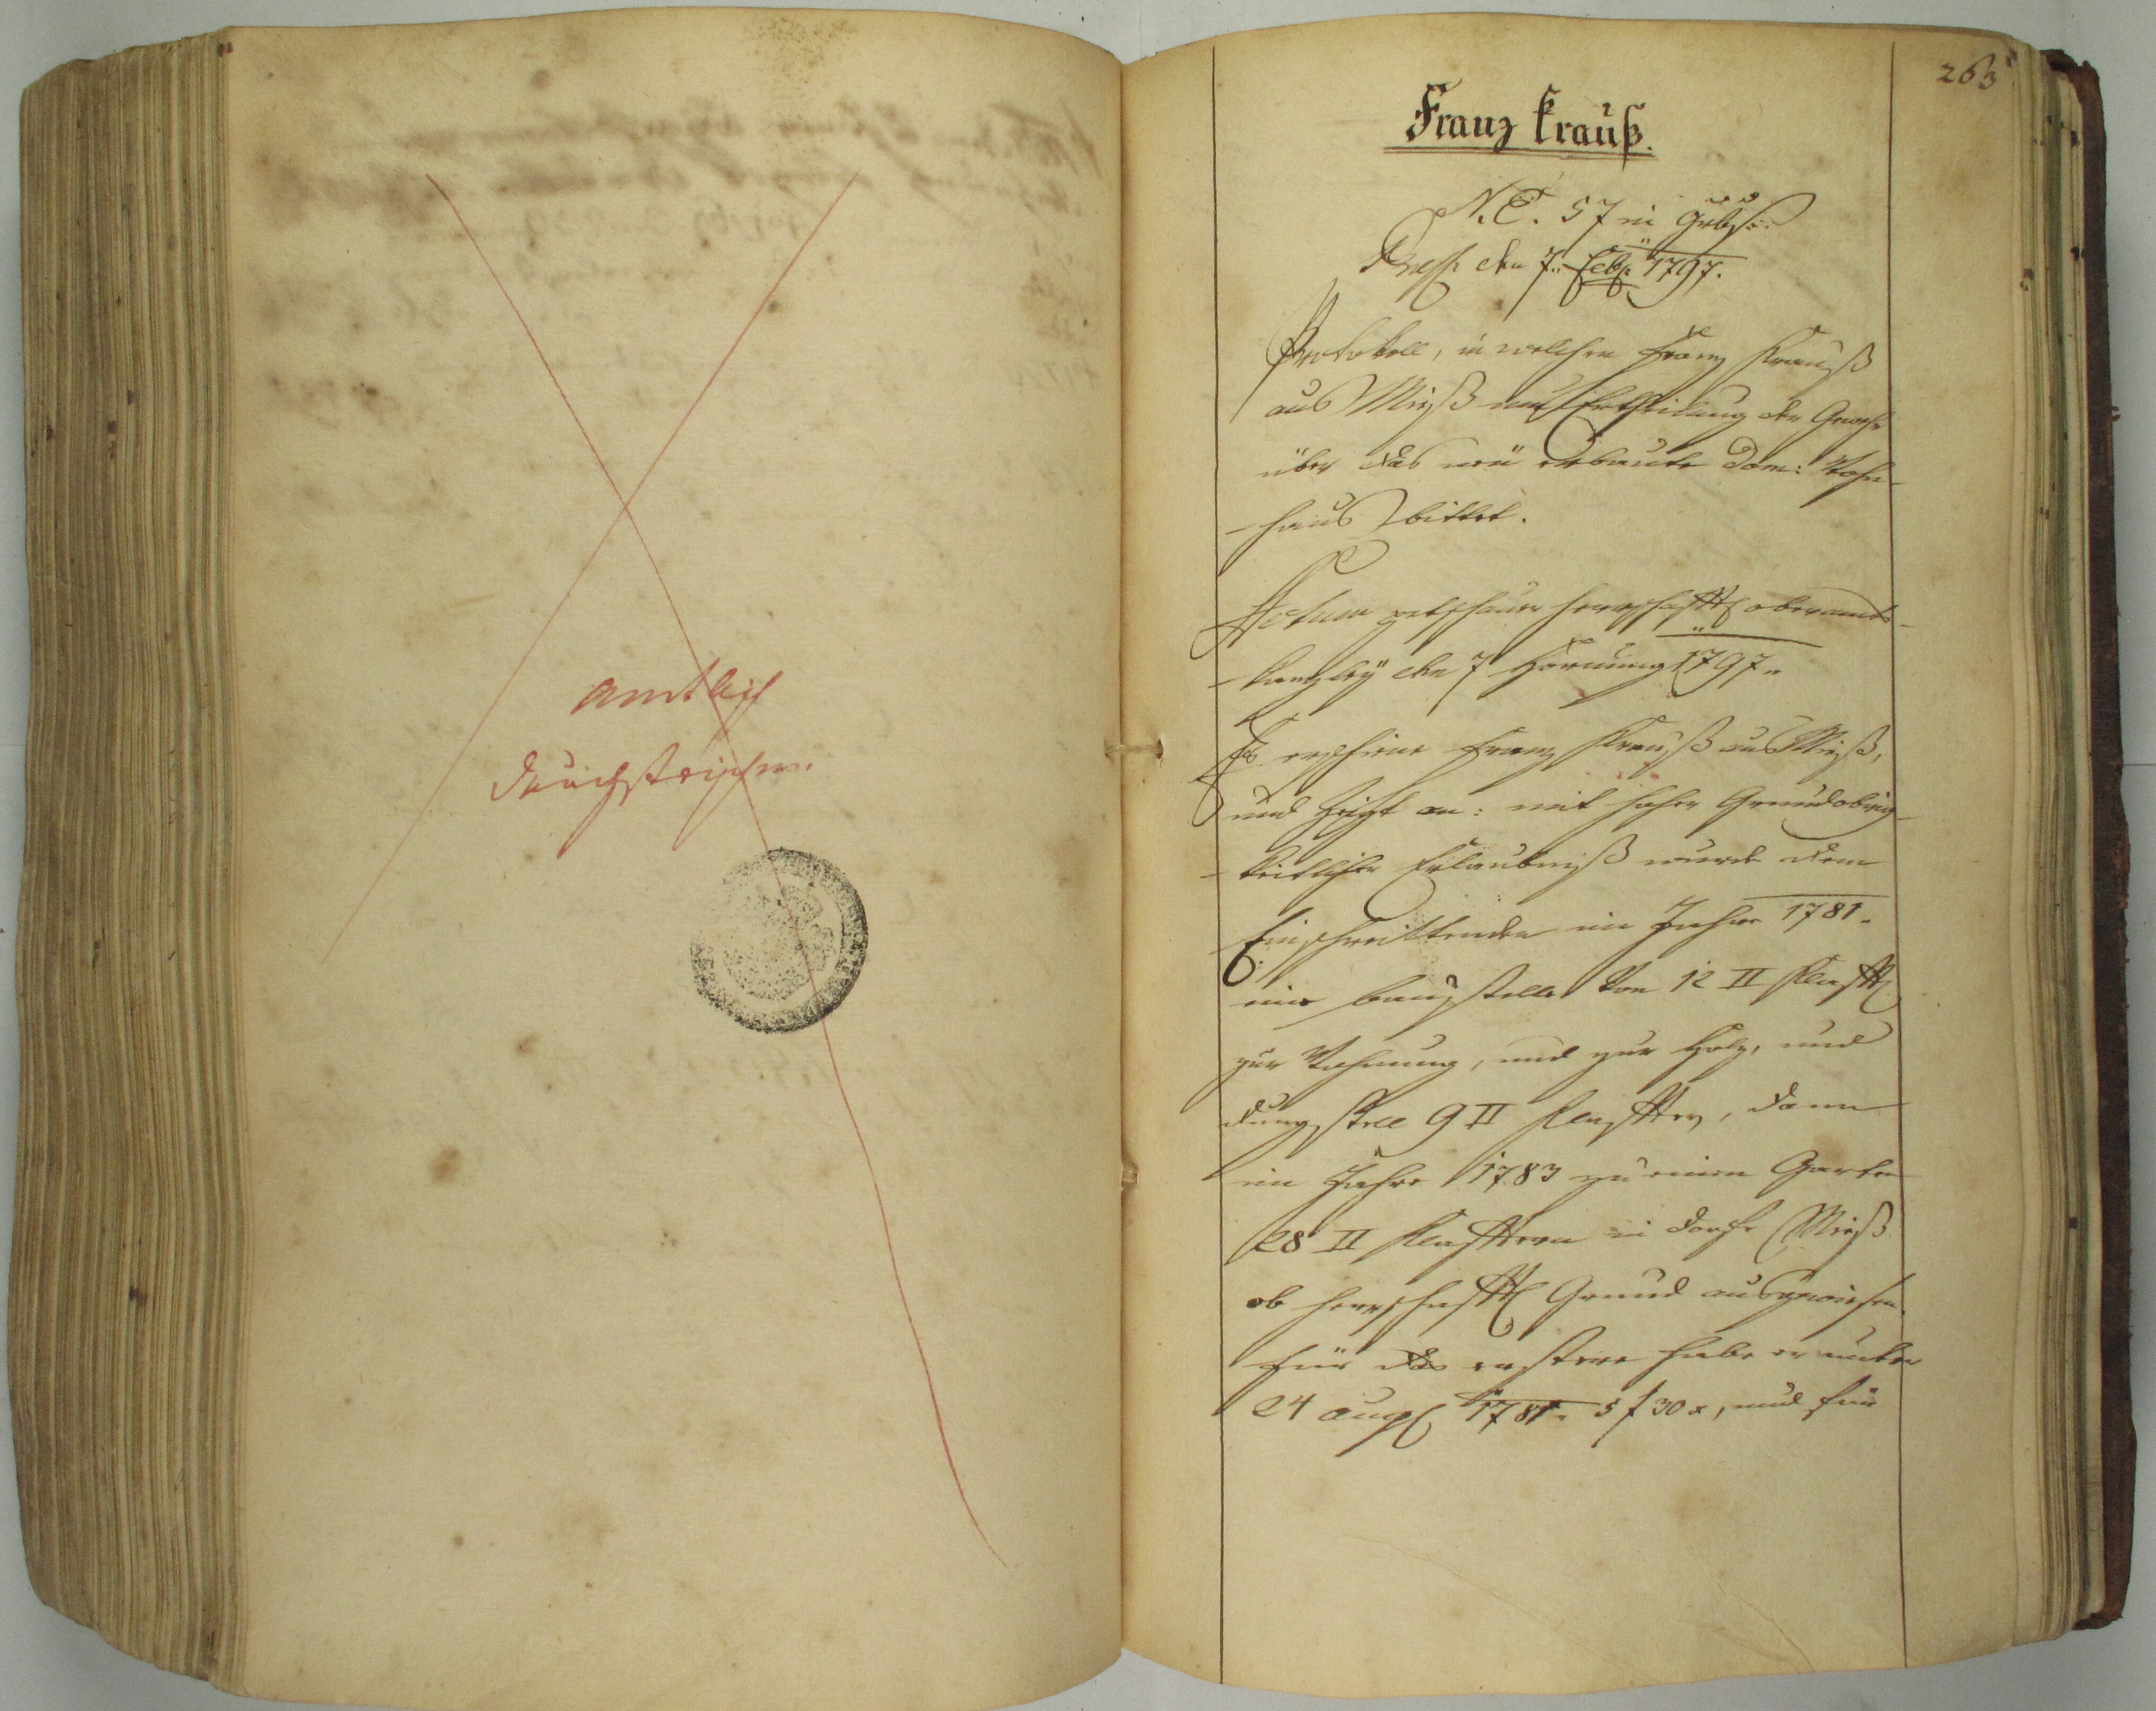 amtlich
durchstrichen.
263
Franz krauß.
N. E. 57 in
Præs: den 7. Feb: 1797.
Protokoll, in welchen Franz Krauß
aus Mieß um Ertheilung der Gewehr
über das neü erbaute Dom: Wohn-
-haus bittet.
Actum herrschaftl oberamts-
-kanzleÿ den 7 Hornung 1797.
Es erscheint Franz Krauß aus Mieß,
und zeigt an: mit hoher Grundobrig-
-keitlicher Erlaubniß wurde dem
Einschreittenden im Jahre 1781.
eine baustelle von 12 II Klaftl
zur Wohnung, und zur Holz, und
dungstell 9 II Klafter, dann
im Jahre 1783 zu einem Garten
28 II Klaftern in Dorfe Mieß
ob herrschaftl Grund ausgewiesen.
für das erstere habe er unter
24 aug 1781. 5 f 30 x, und für